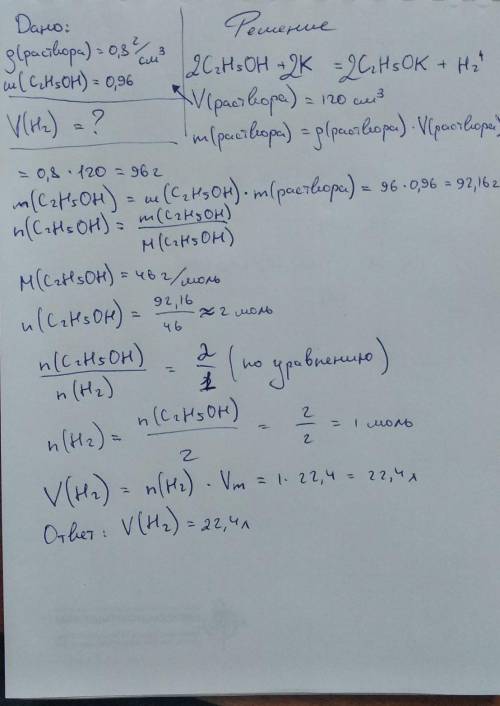 Дано:
ρ(раствора) = 0,8 г/см³
ω(C₂H₅OH) = 0,96
V(H₂) = ?
Решение
2C₂H₅OH + 2K = 2C₂H₅OK + H₂↑
V(раствора) = 120 см³
m(раствора) = ρ(раствора) · V(раствора)
= 0,8 · 120 = 96 г
m(C₂H₅OH) = ω(C₂H₅OH) · m(раствора) = 96 · 0,96 = 92,16 г
n(C₂H₅OH) = m(C₂H₅OH) / M(C₂H₅OH)
M(C₂H₅OH) = 46 г/моль
n(C₂H₅OH) = 92,16 / 46 ≈ 2 моль
n(C₂H₅OH) / n(H₂) = 2 / 1 (по уравнению)
n(H₂) = n(C₂H₅OH) / 2 = 2 / 2 = 1 моль
V(H₂) = n(H₂) · Vm = 1 · 22,4 = 22,4 л
Ответ: V(H₂) = 22,4 л